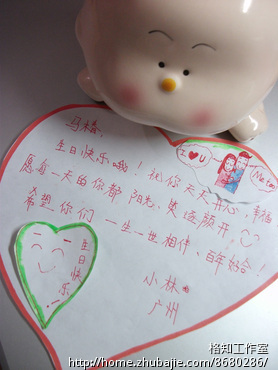 马春,
生日快乐哦!祝你天天开心,幸福
愿每一天的你都 阳光、笑逐颜开
希望你们 一生一世相伴,百年好合!
小林
广州
I ❤ U
Me too
生日快乐!
格知工作室
http://home.zhubajie.com/8680286/